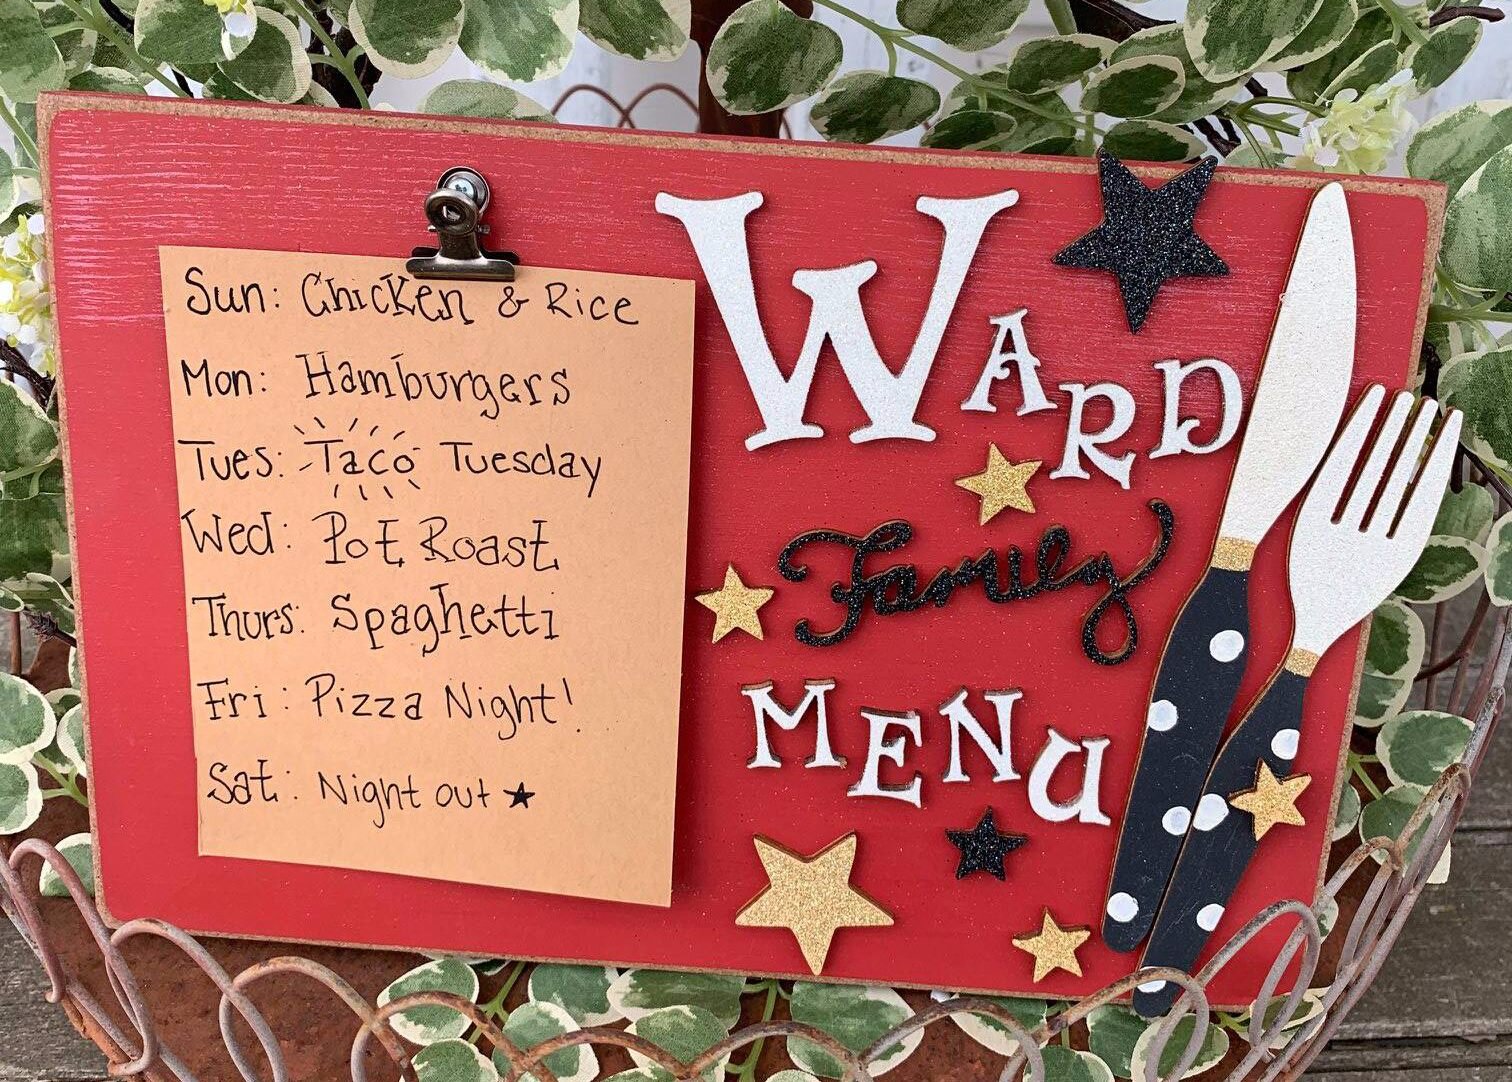 Sun: Chicken & Rice
Mon: Hamburgers
Tues: Taco Tuesday
Wed: Pot Roast
Thurs: Spaghetti
Fri: Pizza Night!
Sat: Night out ★
WARD
Family
MENU